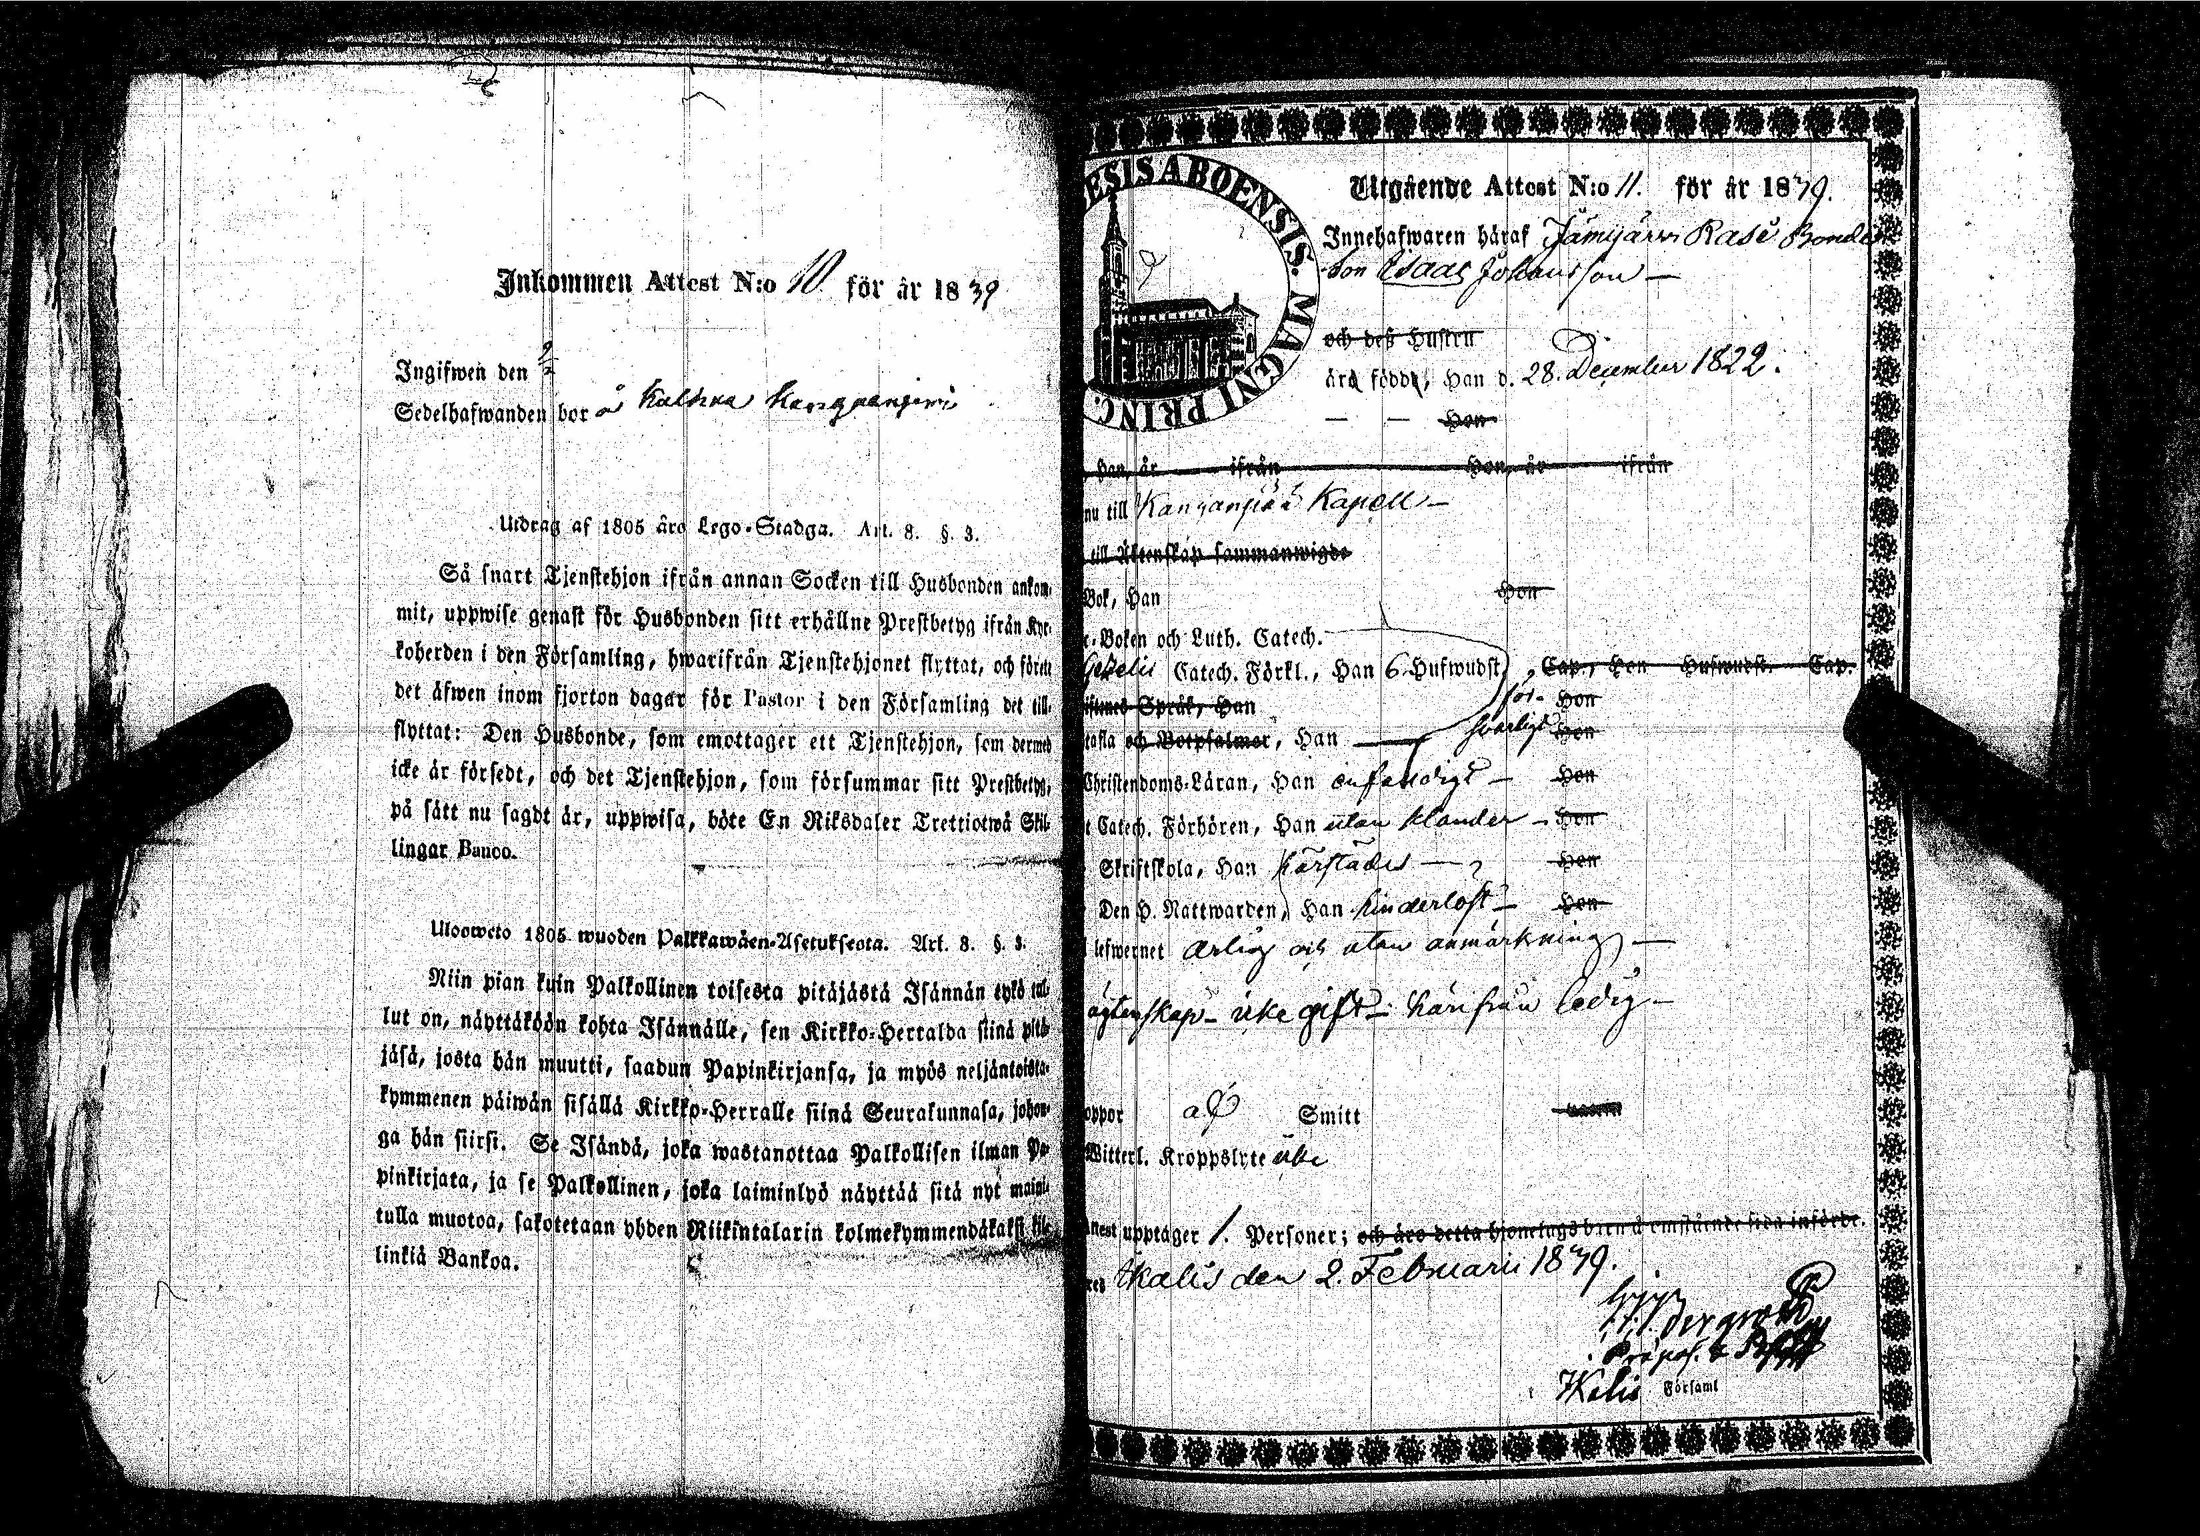 Inkommen Attest N:o 10 för år 1839
Ingifwen den 9/2
Sedelhafwanden bor å
Utdrag af 1805 års Lego-Stadga. Art. 8. §. 3.
Så snart Tjenstehjon ifrån annan Socken till Husbonden ankom-
mit, uppwise genast för Husbonden sitt erhållne Prestbetyg ifrån Kyr-
koherden i den Församling, hwarifrån Tjenstehjonet flyttat, och förete
det äfwen inom fjorton dagar för Pastor i den Församling det till-
flyttat: Den Husbonde, som emottager ett Tjenstehjon, som dermed
icke är försedt, och det Tjenstehjon, som försummar sitt Prestbetyg,
på sätt nu sagdt är, uppwisa, böte En Riksdaler Trettiotwå Skil-
lingar Banco.
Ulosweto 1805 wuoden Palkkawäen-Asetuksesta. Art. 8. §. 3.
Niin pian kuin Palkollinen toisesta pitäjästä Isännän tykö tul-
lut on, näyttäköön kohta Isännälle, sen Kirkko-Herralda siinä pitä-
jäsä, josta hän muutti, saadun Papinkirjansa, ja myös neljäntoista-
kymmenen päiwän sisällä Kirkko-Herralle siinä Seurakunnasa, johon-
ga hän siirsi. Se Isändä, joka wastanottaa Palkollisen ilman Pa-
pinkirjata, ja se Palkollinen, joka laiminlyö näyttää sitä nyt maini-
tulla muotoa, sakotetaan yhden Riikintalarin kolmekymmendäkaksi kil-
linkiä Bankoa.
ESIS ABOENSIS. MAGNI PRINC.
Utgående Attest N:o 11. för år 1839.
Innehafwaren häraf Jämijärwi Rase Bonde
son Isaac Johansson
och dess Hustru
äro födde, Han d. 28. December 1822.
Hon
Han, år ifrån Hon, år ifrån
nu till Kangangää Kapell
till Äktenskap sammanwigde
Bok, Han Hon
c-Boken och Luth. Catech.
Gezelii Catech. Förkl., Han 6 Hufwudst, Cap., Hon Hufwudst. Cap.
iftenes Språk, Han för- Hon
tafla och Botpsalmer, Han swarligt Hon
Christendoms-Läran, Han enfaldigt Hon
Catech. Förhören, Han utan klander Hon
Skriftskola, Han härstädes Hon
Den H. Nattwarden, Han hinderlöst Hon
lefwernet ärlig och utan anmärkning
ägtenskap icke gift härifrån ledig
oppor af Smitt
Witterl. Kroppslyte icke
Attest upptager 1. Personer; och äro detta hjonelags barn å omstående sida införde.
Ikalis den 2. Februarii 1839.
Ikalis Församl